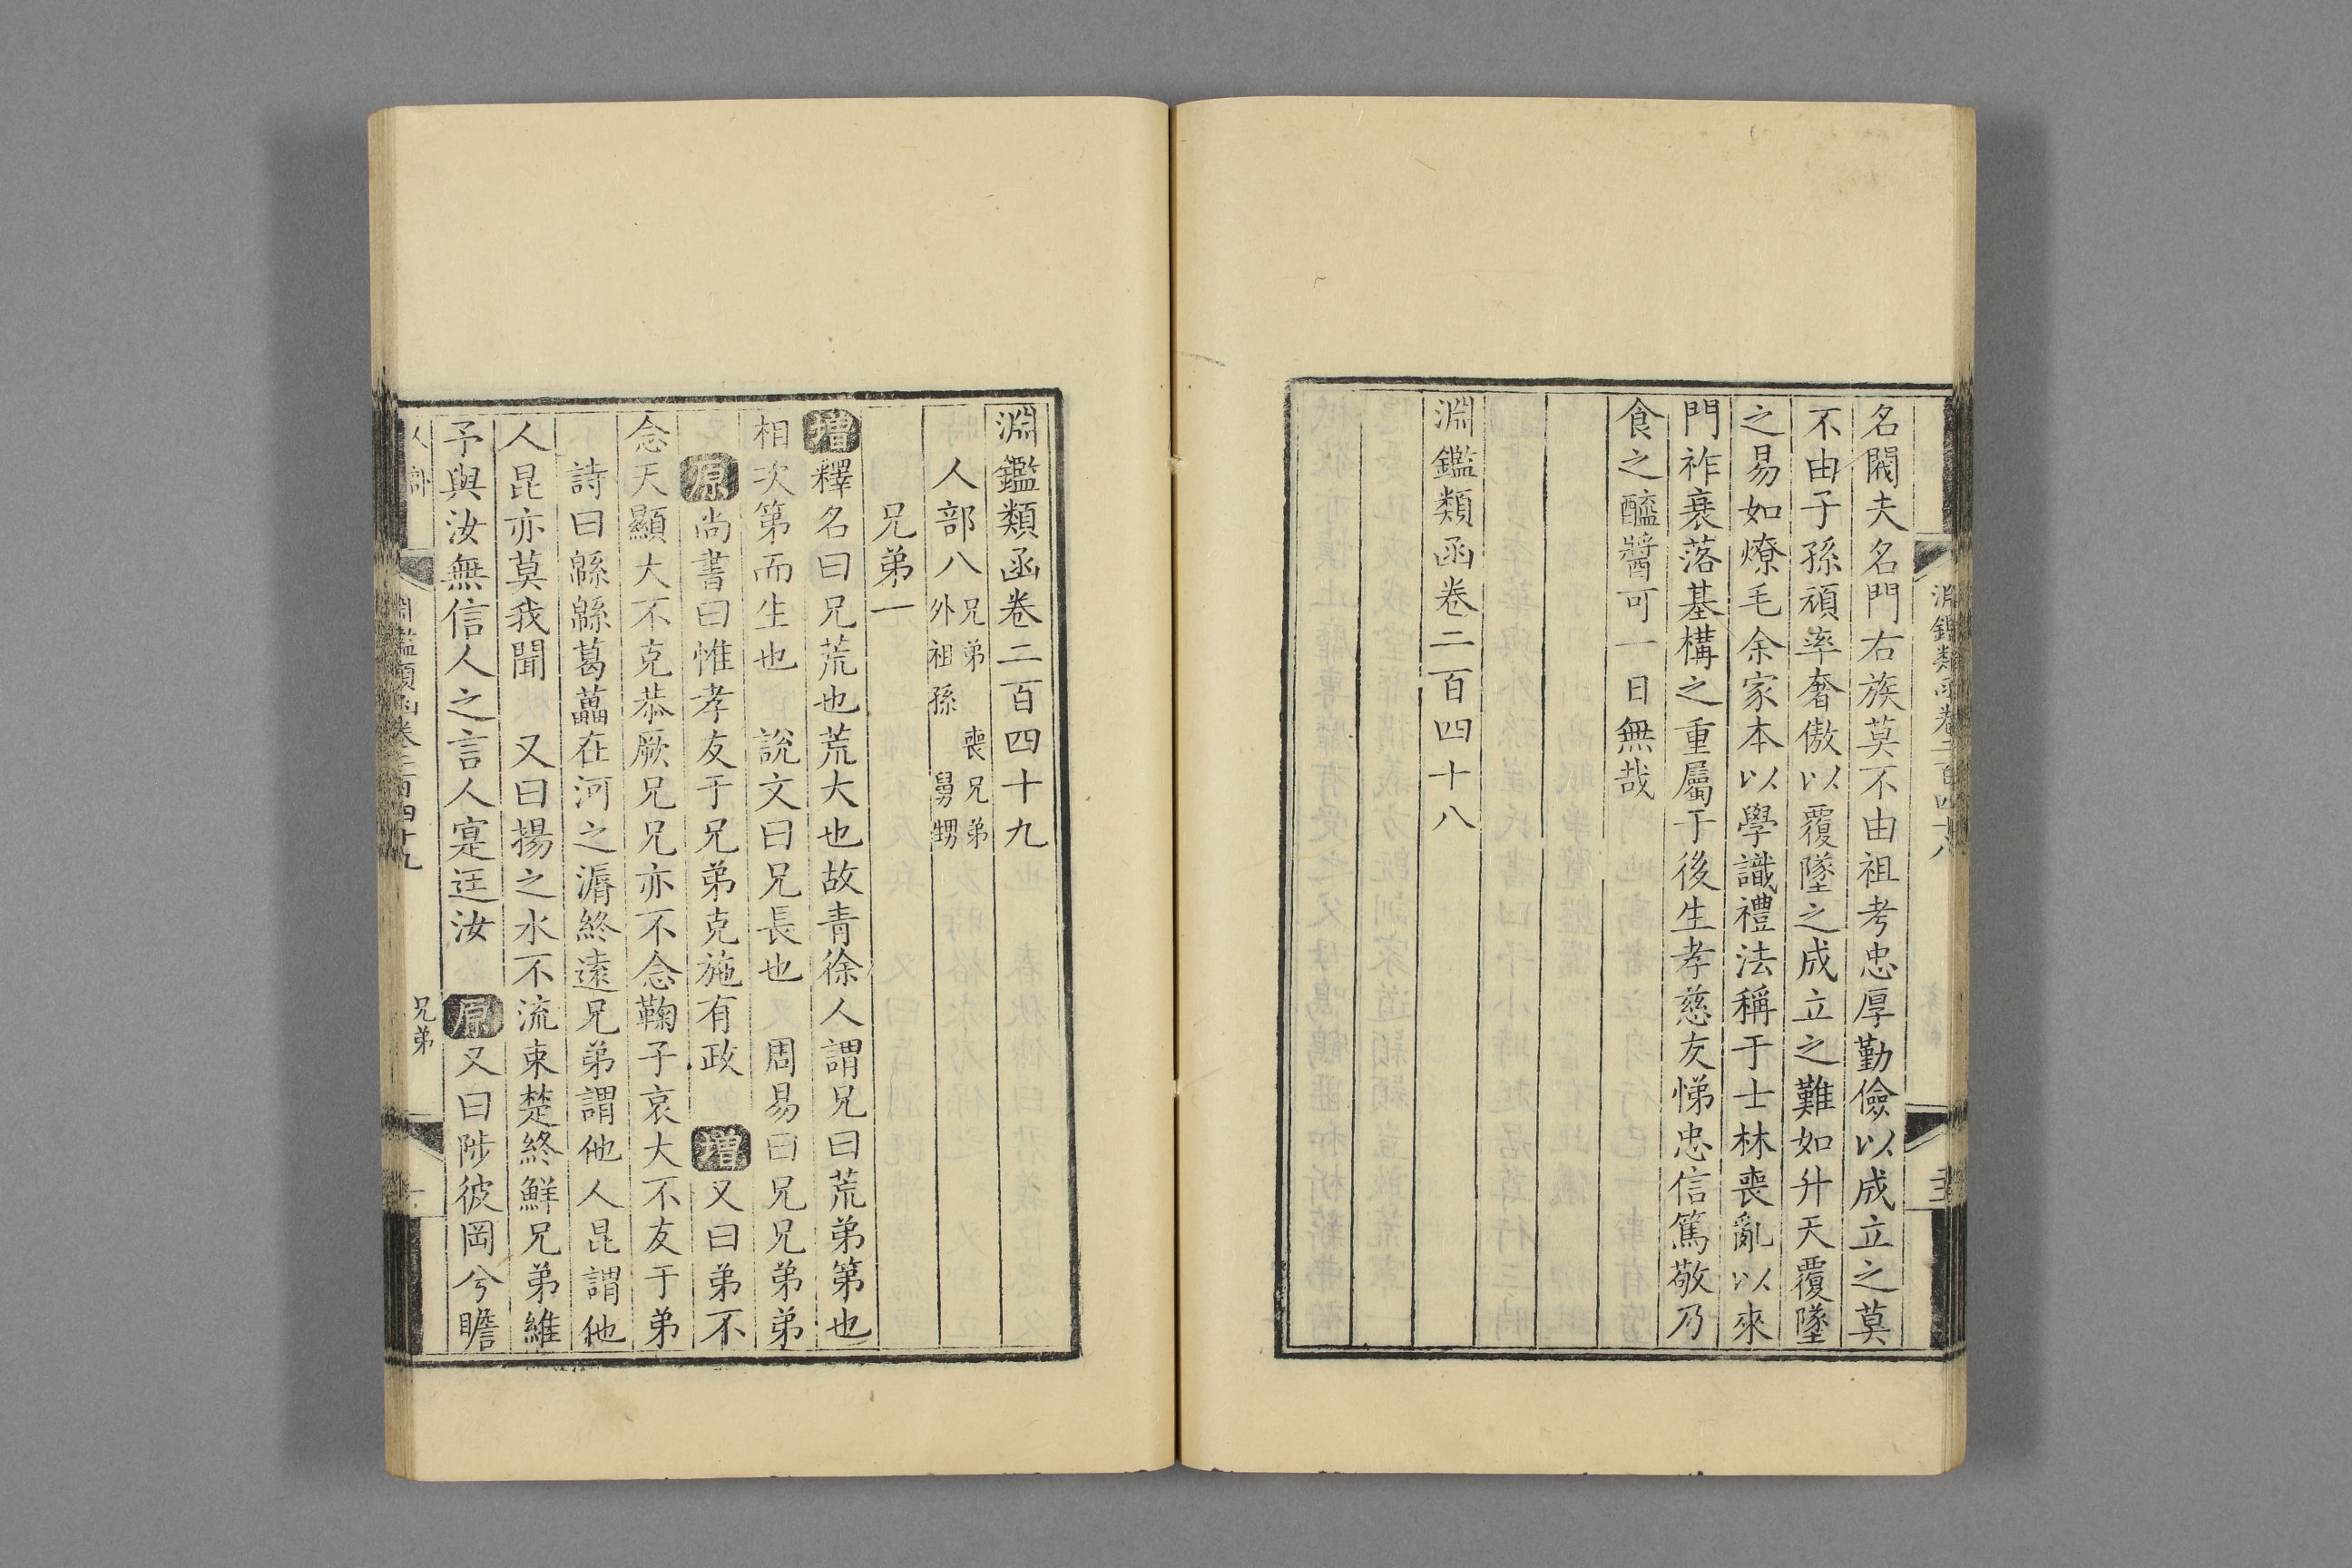 名閥夫名門右族莫不由祖考忠厚勤儉以成立之莫
不由子孫頑率奢傲以覆墜之成立之難如升天覆墜
之易如燎毛余家本以學識禮法稱于士林喪亂以來
門祚衰落基構之重屬于後生孝慈友悌忠信篤敬乃
食之醯醬可一日無哉
淵鑑類函卷二百四十八
淵鑑類函卷二百四十九
人部八 兄弟 喪兄弟
外祖孫 舅甥
兄弟一
增釋名曰兄荒也荒大也故青徐人謂兄曰荒弟第也
相次第而生也 說文曰兄長也 周易曰兄兄弟弟
原尚書曰惟孝友于兄弟克施有政 增又曰弟不
念天顯大不克恭厥兄兄亦不念鞠子哀大不友于弟
詩曰緜緜葛藟在河之漘終遠兄弟謂他人昆謂他
人昆亦莫我聞 又曰揚之水不流束楚終鮮兄弟維
予與汝無信人之言人寔迋汝 原又曰陟彼岡兮瞻
淵鑑類函卷二百四十九
兄弟